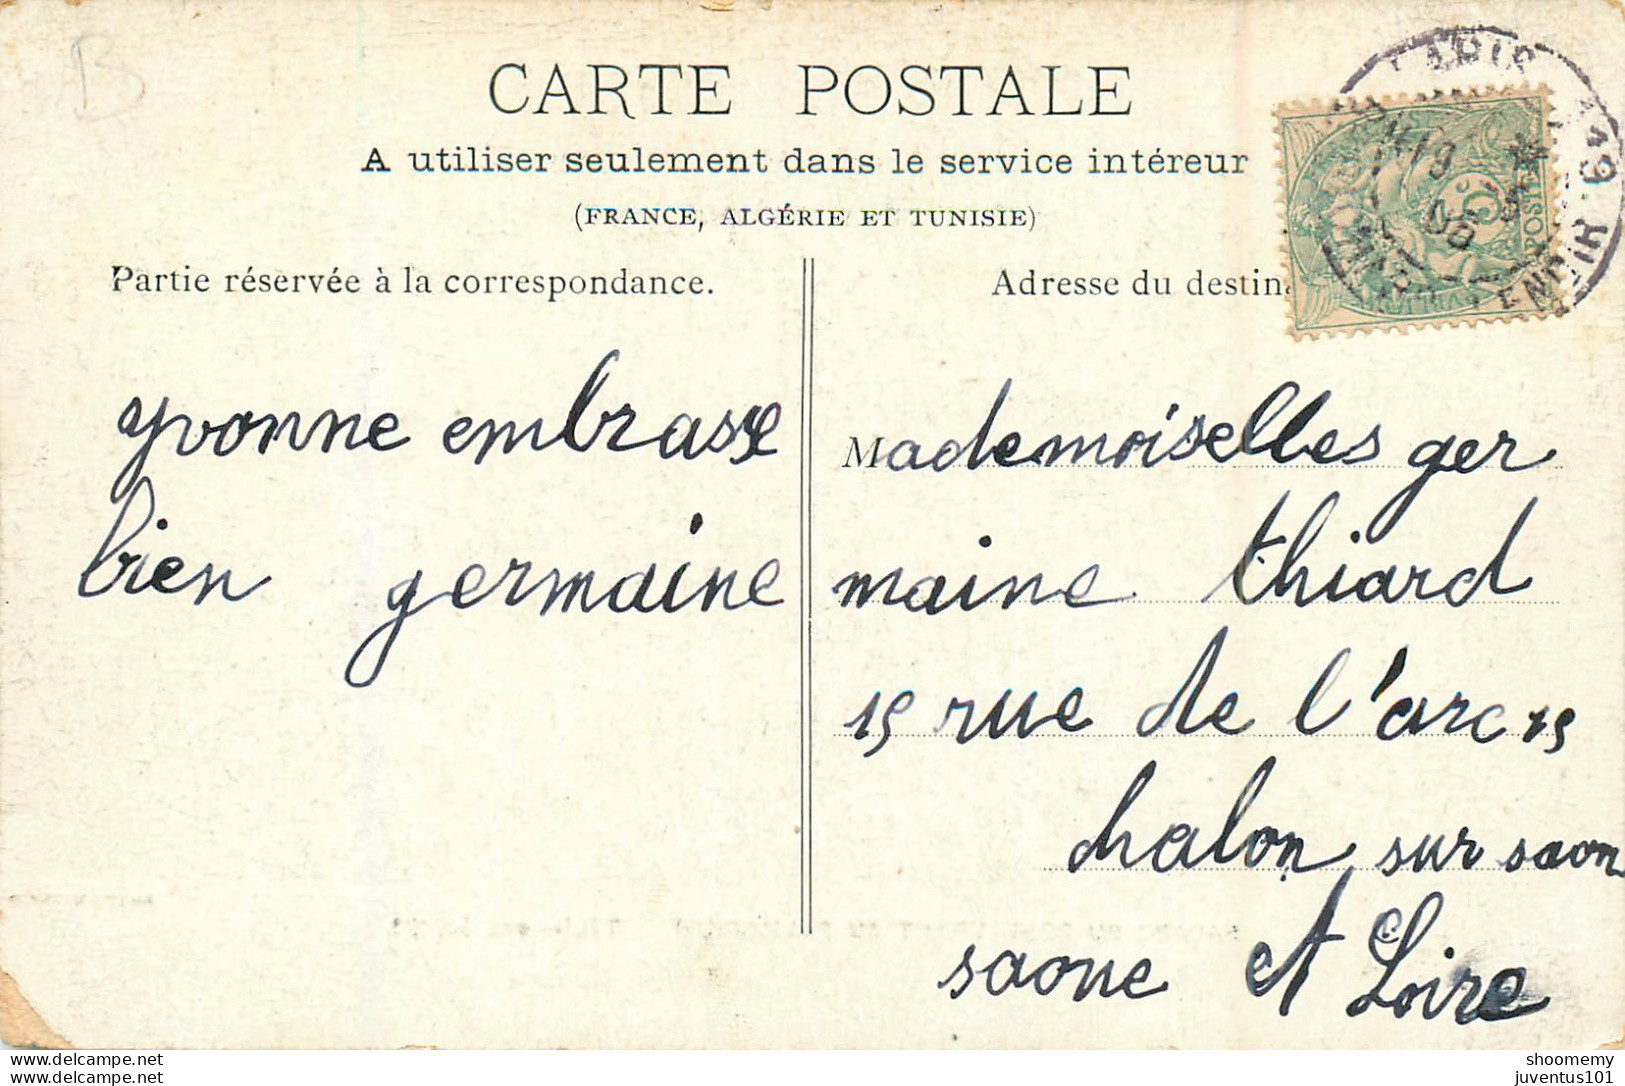 B
CARTE POSTALE
A utiliser seulement dans le service intéreur
(FRANCE, ALGÉRIE ET TUNISIE)
Partie réservée à la correspondance.
yvonne embrasse
bien germaine
Adresse du destin
POSTES
Mademoiselles ger
maine thiard
15 rue de l'arc 15
chalon sur saon
saone et Loire
delcampe.net
juventus101
shoomemy
juventus101